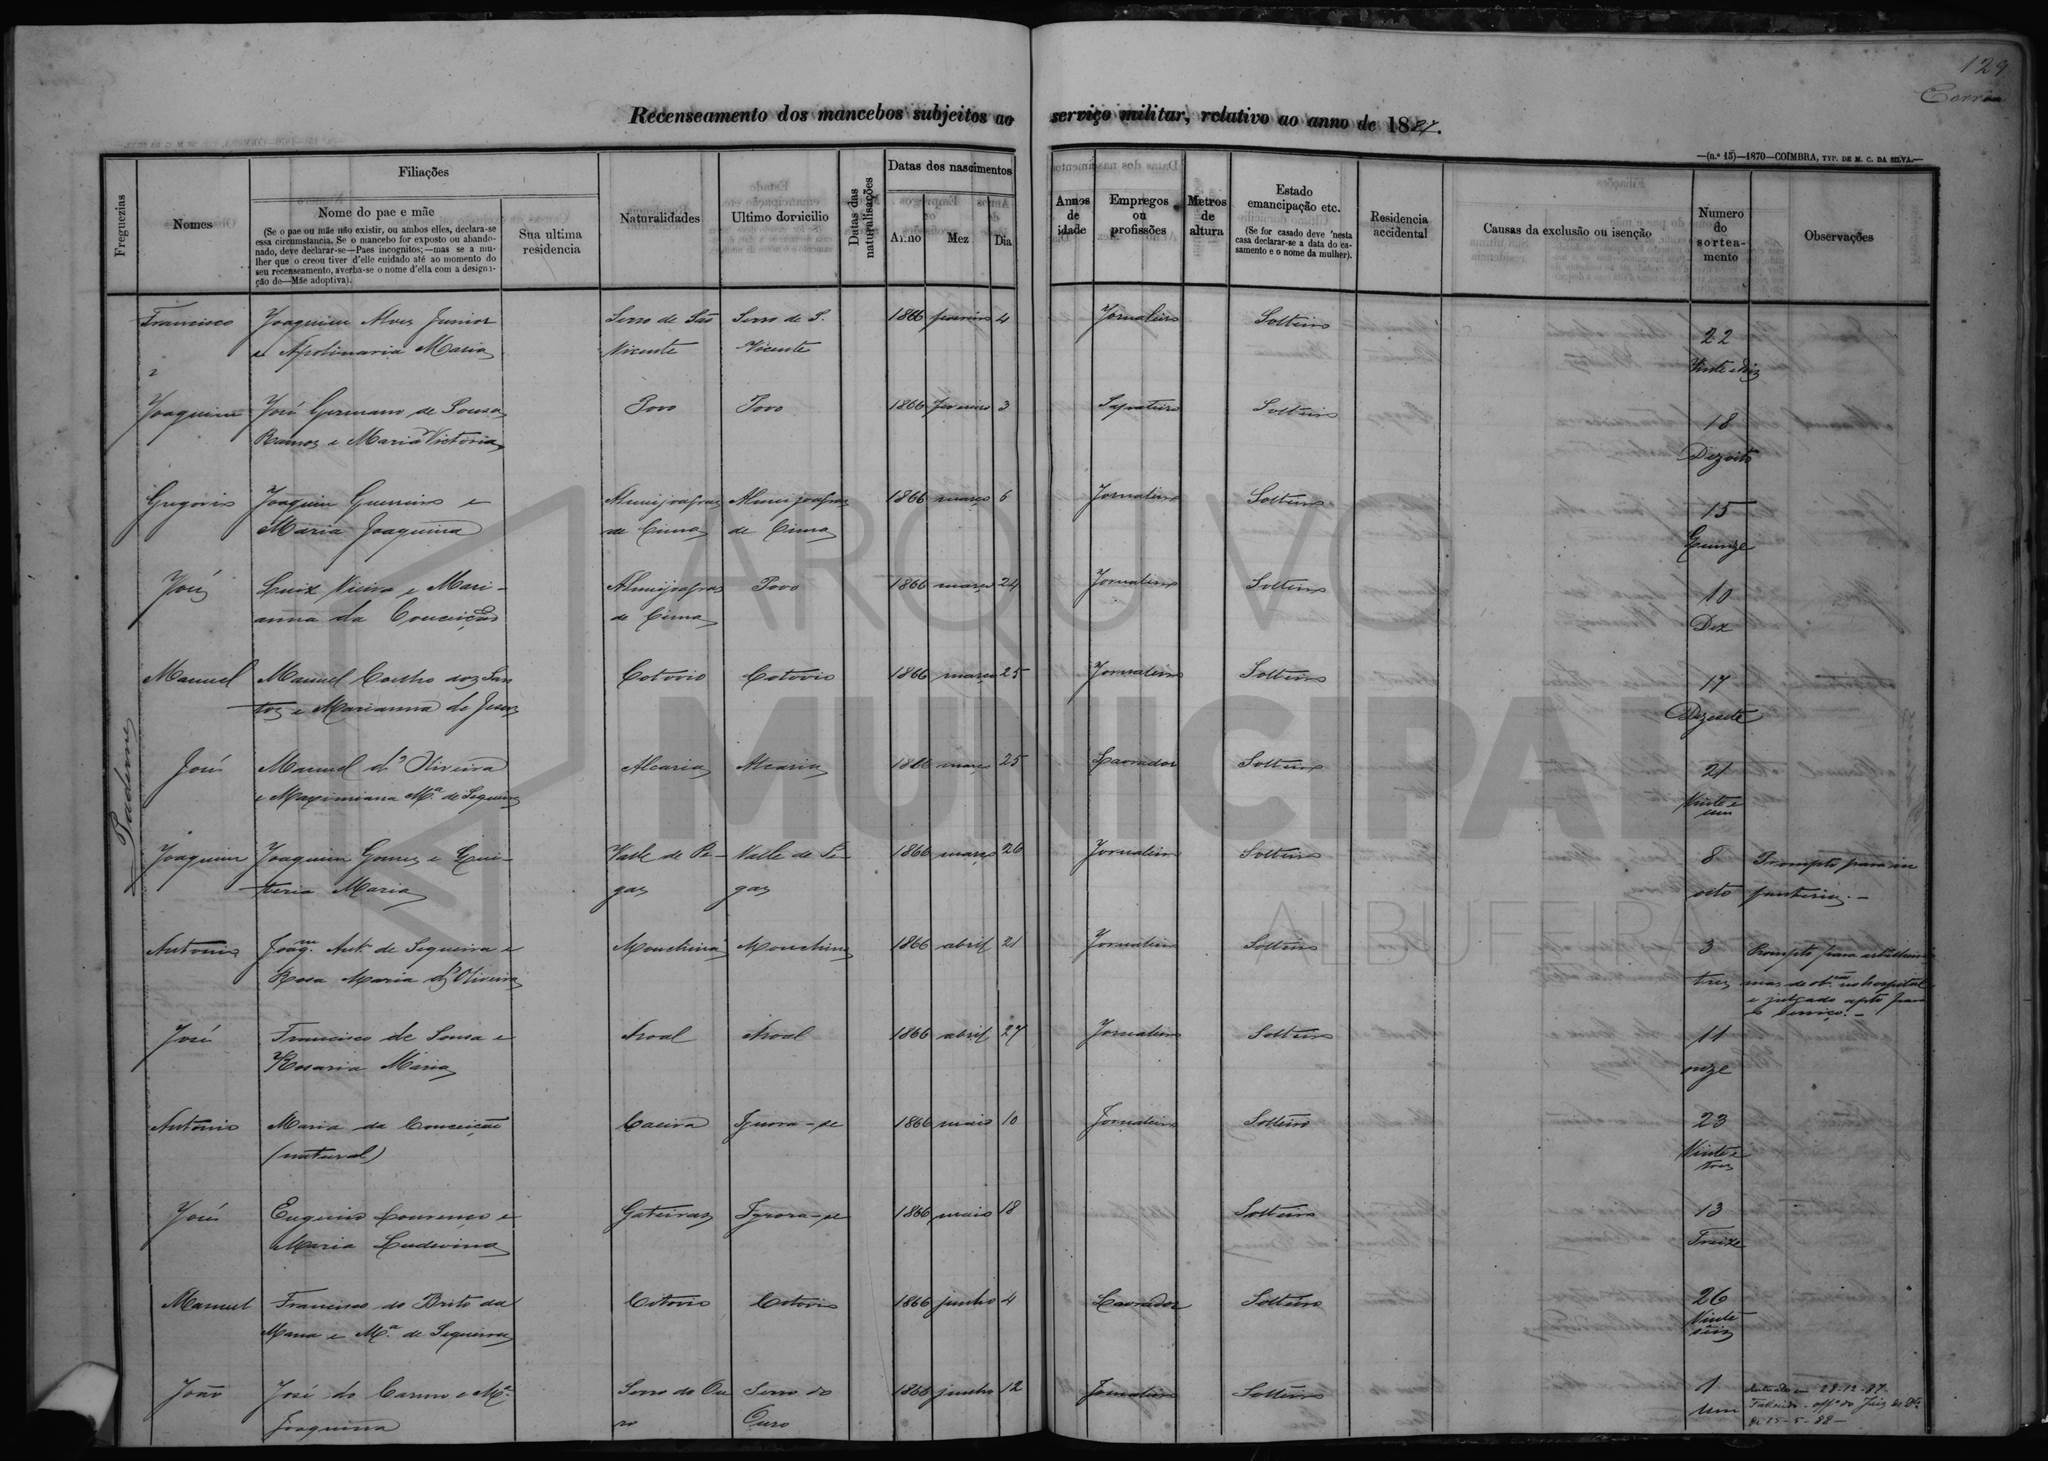 129
Recenseamento dos mancebos subjeitos ao serviço militar, relativo ao anno de 1887.
—(n.º 15)—1870—COIMBRA, TYP. DE M. C. DA SILVA.—
Freguezias
Nomes
Filiações
Nome do pae e mãe
(Se o pae ou mãe não existir, ou ambos elles, declara-se
essa circumstancia. Se o mancebo for exposto ou abando-
nado, deve declarar-se—Paes incognitos;—mas se a mu-
lher que o creou tiver d'elle cuidado até ao momento do
seu recenseamento, averba-se o nome d'ella com a design-
ção de—Mãe adoptiva).
Sua ultima
residencia
Naturalidades
Ultimo domicilio
Datas das
naturalisações
Datas dos nascimentos
Anno
Mez
Dia
Annos
de
idade
Empregos
ou
profissões
Metros
de
altura
Estado
emancipação etc.
(Se for casado deve 'nesta
casa declarar-se a data do ca-
samento e o nome da mulher).
Residencia
accidental
Causas da exclusão ou isenção
Numero
do
sortea-
mento
Observações
Paderne
Francisco Joaquim Alves Junior Serro de São Serro de S. 1866 4 Jornaleiro Solteiro 22
e Apolinaria Maria Vicente Vicente Vinte e dois
Joaquim José Germano de Sousa Povo Povo 1866 fevereiro 3 Sapateiro Solteiro 18
Ramos e Maria Victoria Dezoito
Gregorio Joaquim Guerreiro e Almeijoafras Almeijoafras 1866 março 6 Jornaleiro Solteiro 15
Maria Joaquina de Cima de Cima Quinze
José Luiz Vieira e Mari- Almeijoafras Povo 1866 março 24 Jornaleiro Solteiro 10
anna da Conceição de Cima Dez
Manuel Manuel Coelho dos San Cotovio Cotovio 1866 março 25 Jornaleiro Solteiro 17
tos e Marianna de Jesus Dezesete
José Manuel d'Oliveira Alcaria Alcaria 1866 março 25 Lavrador Solteiro 21
e Maximiana Mª. de Sequeira Vinte e
um
Joaquim Joaquim Gomes e Qui- Valle de Pe- Valle de Pe- 1866 março 26 Jornaleiro Solteiro 8 Prompto para in
teria Maria gas gas oito fanteria.—
Antonio Joaqm. Antº. de Sequeira e Mouchina Mouchina 1866 abril 21 Jornaleiro Solteiro 3 Prompto para
Rosa Maria d'Oliveira tres mas de no hospital
e julgado apto para
o serviço.—
José Francisco de Sousa e Aroal Aroal 1866 abril 27 Jornaleiro Solteiro 11
Rosaria Maria onze
Antonio Maria da Conceição Caeira Ignora-se 1866 maio 10 Jornaleiro Solteiro 23
(natural) Vinte e
tres
José Eugenio Lourenço e Gateiras Ignora-se 1866 maio 18 Solteiro 13
Maria Ludovina Treize
Manuel Francisco de Brito da Cotovio Cotovio 1866 junho 4 Lavrador Solteiro 26
Mana e Mª. de Sequeira Vinte
seis
João José do Carmo e Mª. Serro do Ou Serro do 1866 junho 12 Jornaleiro Solteiro 1 28-12-87
Joaquina ro Ouro um
de 15-5-88—
ARQUIVO
MUNICIPAL
ALBUFEIRA